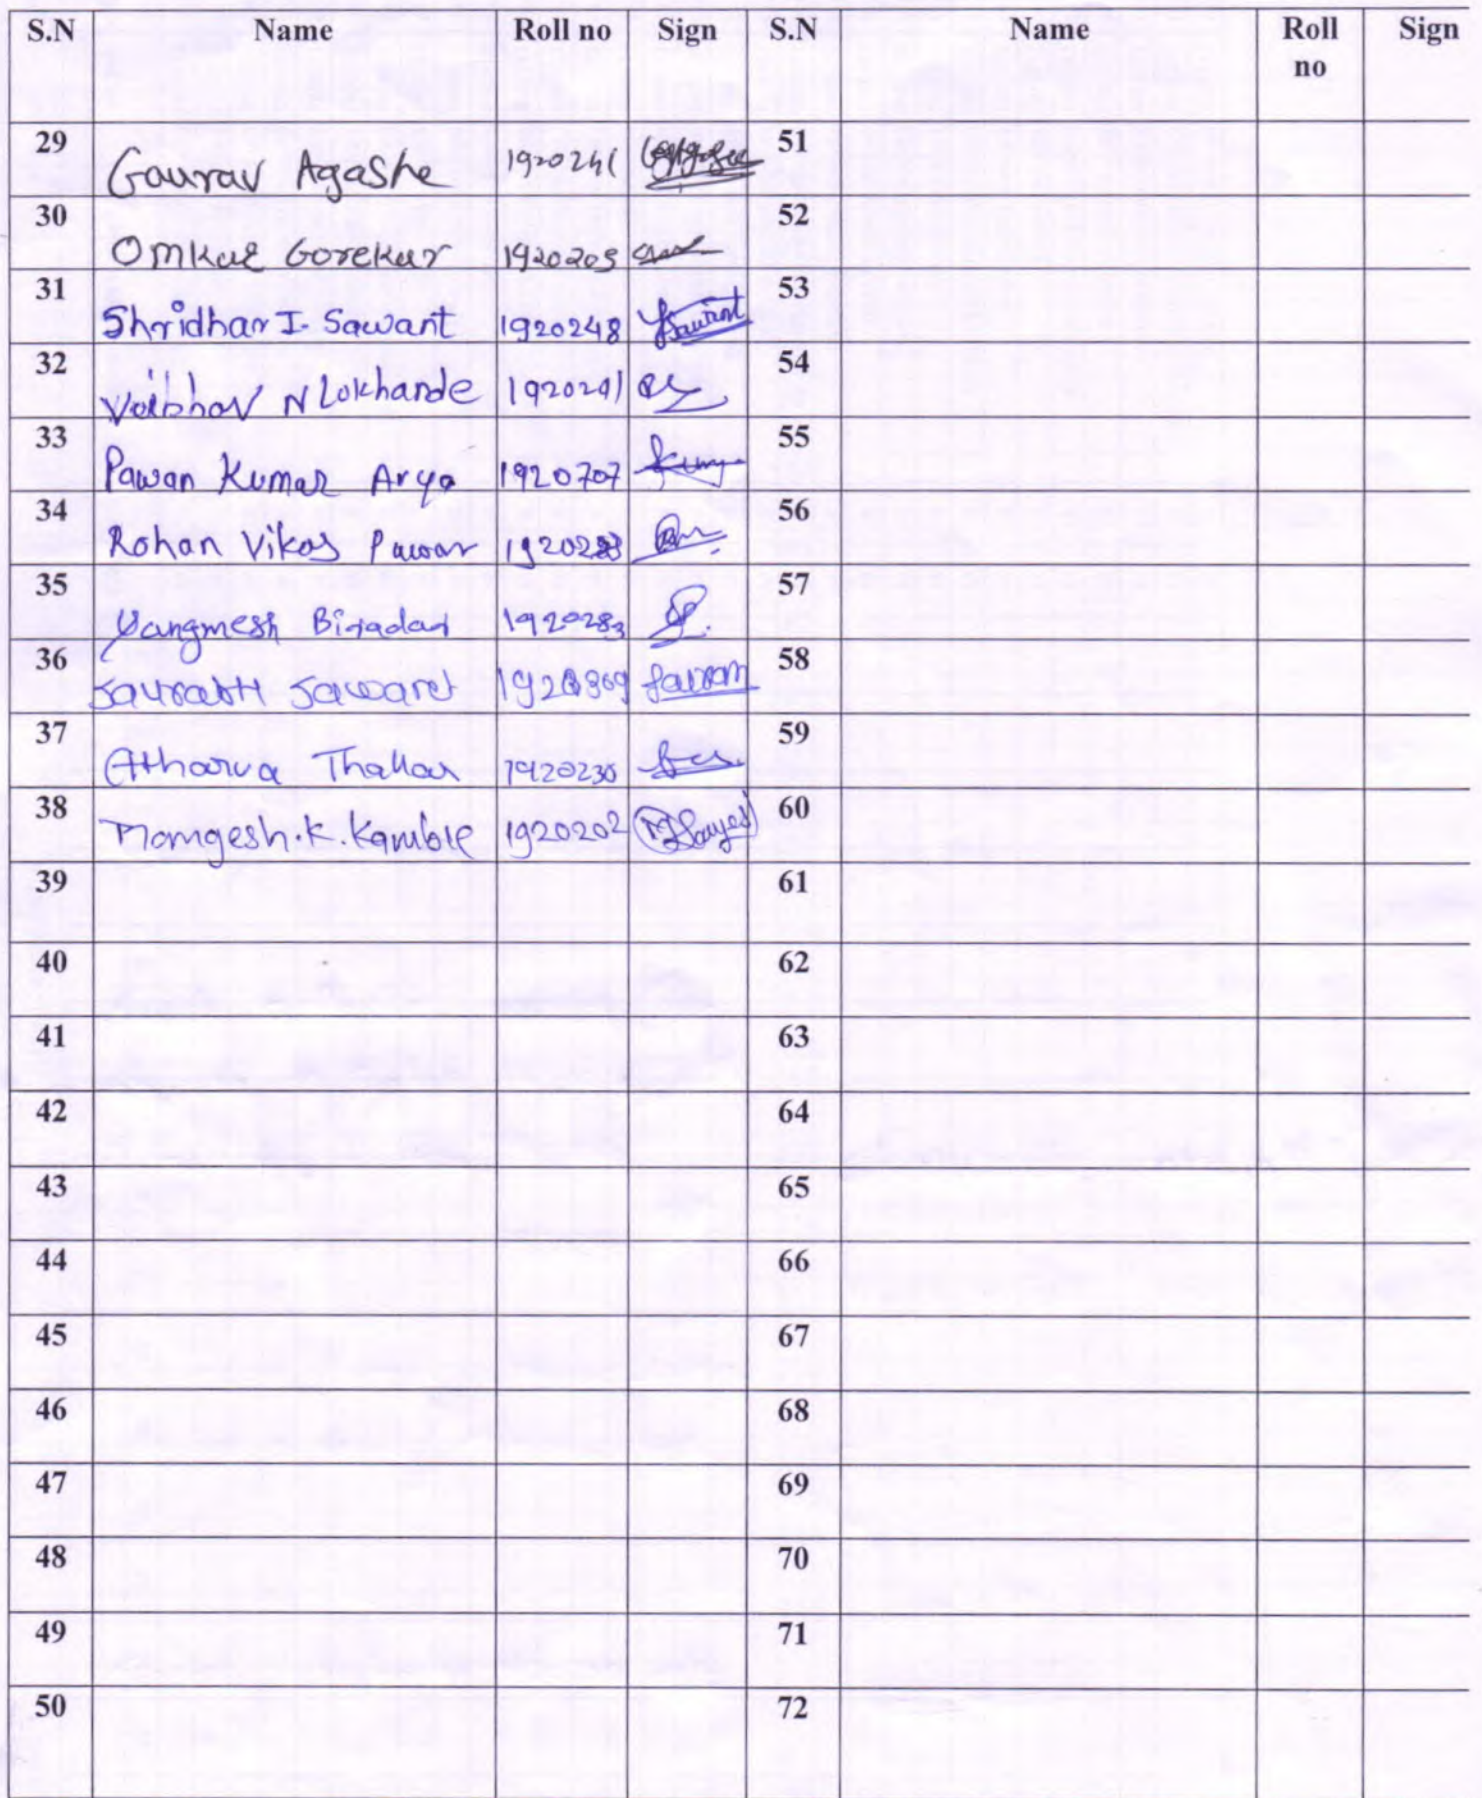 S.N Name Roll no Sign S.N Name Roll no Sign
29 Gaurav Agashe 1920241 51
30 Omkar Gorekar 1920205 52
31 Shridhar I. Sawant 1920248 Sawant 53
32 Vaibhav N Lokhande 1920291 54
33 Pawan Kumar Arya 1920707 55
34 Rohan Vikas Pawar 56
35 Yangmesh Biradar 1920283 57
36 Saurabh Sawant 1920309 58
37 Atharva Thakar 1920230 59
38 Mangesh.K.Kamble 1920202 60
39 61
40 62
41 63
42 64
43 65
44 66
45 67
46 68
47 69
48 70
49 71
50 72